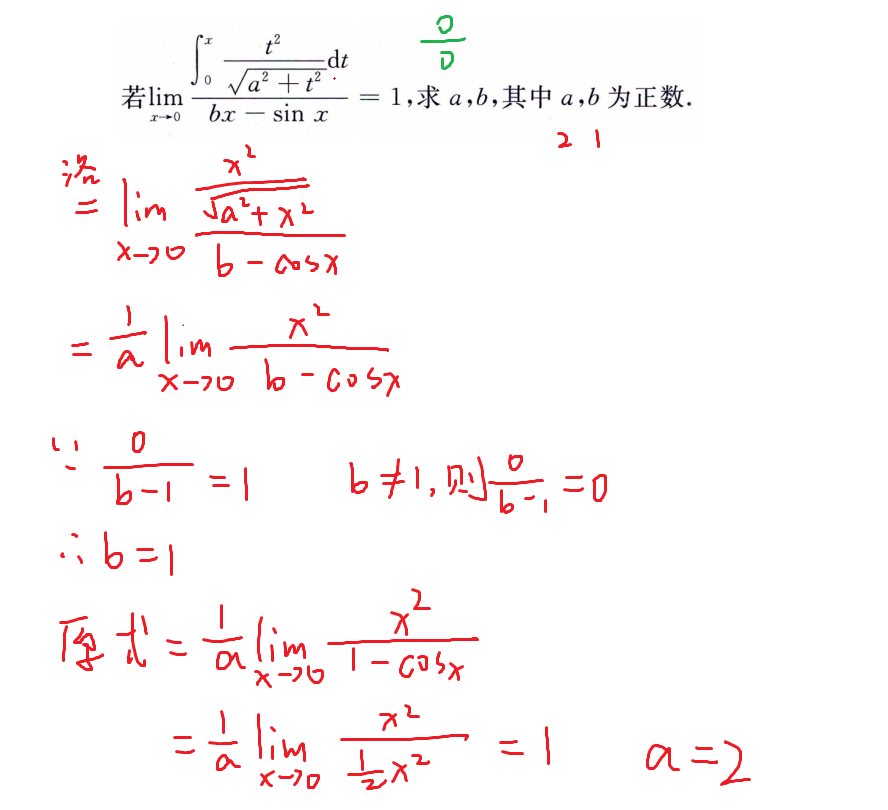 0/0
若lim_{x→0} (∫_0^x t²/√(a² + t²) dt)/(bx − sin x) = 1,求 a,b,其中 a,b 为正数.
2 1
洛
= lim_{x→0} (x²/√(a²+x²))/(b−cosx)
= 1/a lim_{x→0} x²/(b−cosx)
∵ 0/(b−1) = 1 b≠1,则 0/(b−1) = 0
∴ b=1
原式 = 1/a lim_{x→0} x²/(1−cosx)
= 1/a lim_{x→0} x²/(½x²) = 1 a=2